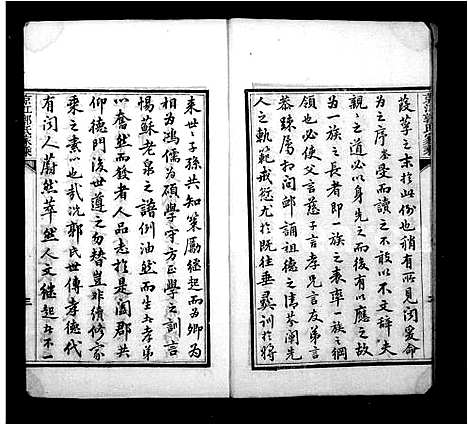 葭莩之末於此例也稍有所見閔爰命
為之序奎受而讀之不敢以不文辭夫
親之道必以身先之而後有以應之故
為一族之長者即一族之表率一族之綱
領也必使父言慈子言孝兄言友弟言
恭踈屬相問邮誦祖德之清芬闡先
人之軌範戒愆尤於既往垂彝訓於將
來世之子孫共知策勵繼起而為卿為
相為鴻儒為碩學守方正學之訓言
惕蘇老泉之譜例油然而生孝弟
以奮然而發者人品志於是闔郡共
仰德門後世遵之勿替豈非績修家
乘之素以也哉况郭氏世傳孝德代
有聞人蔚然萃然人文繼起不一